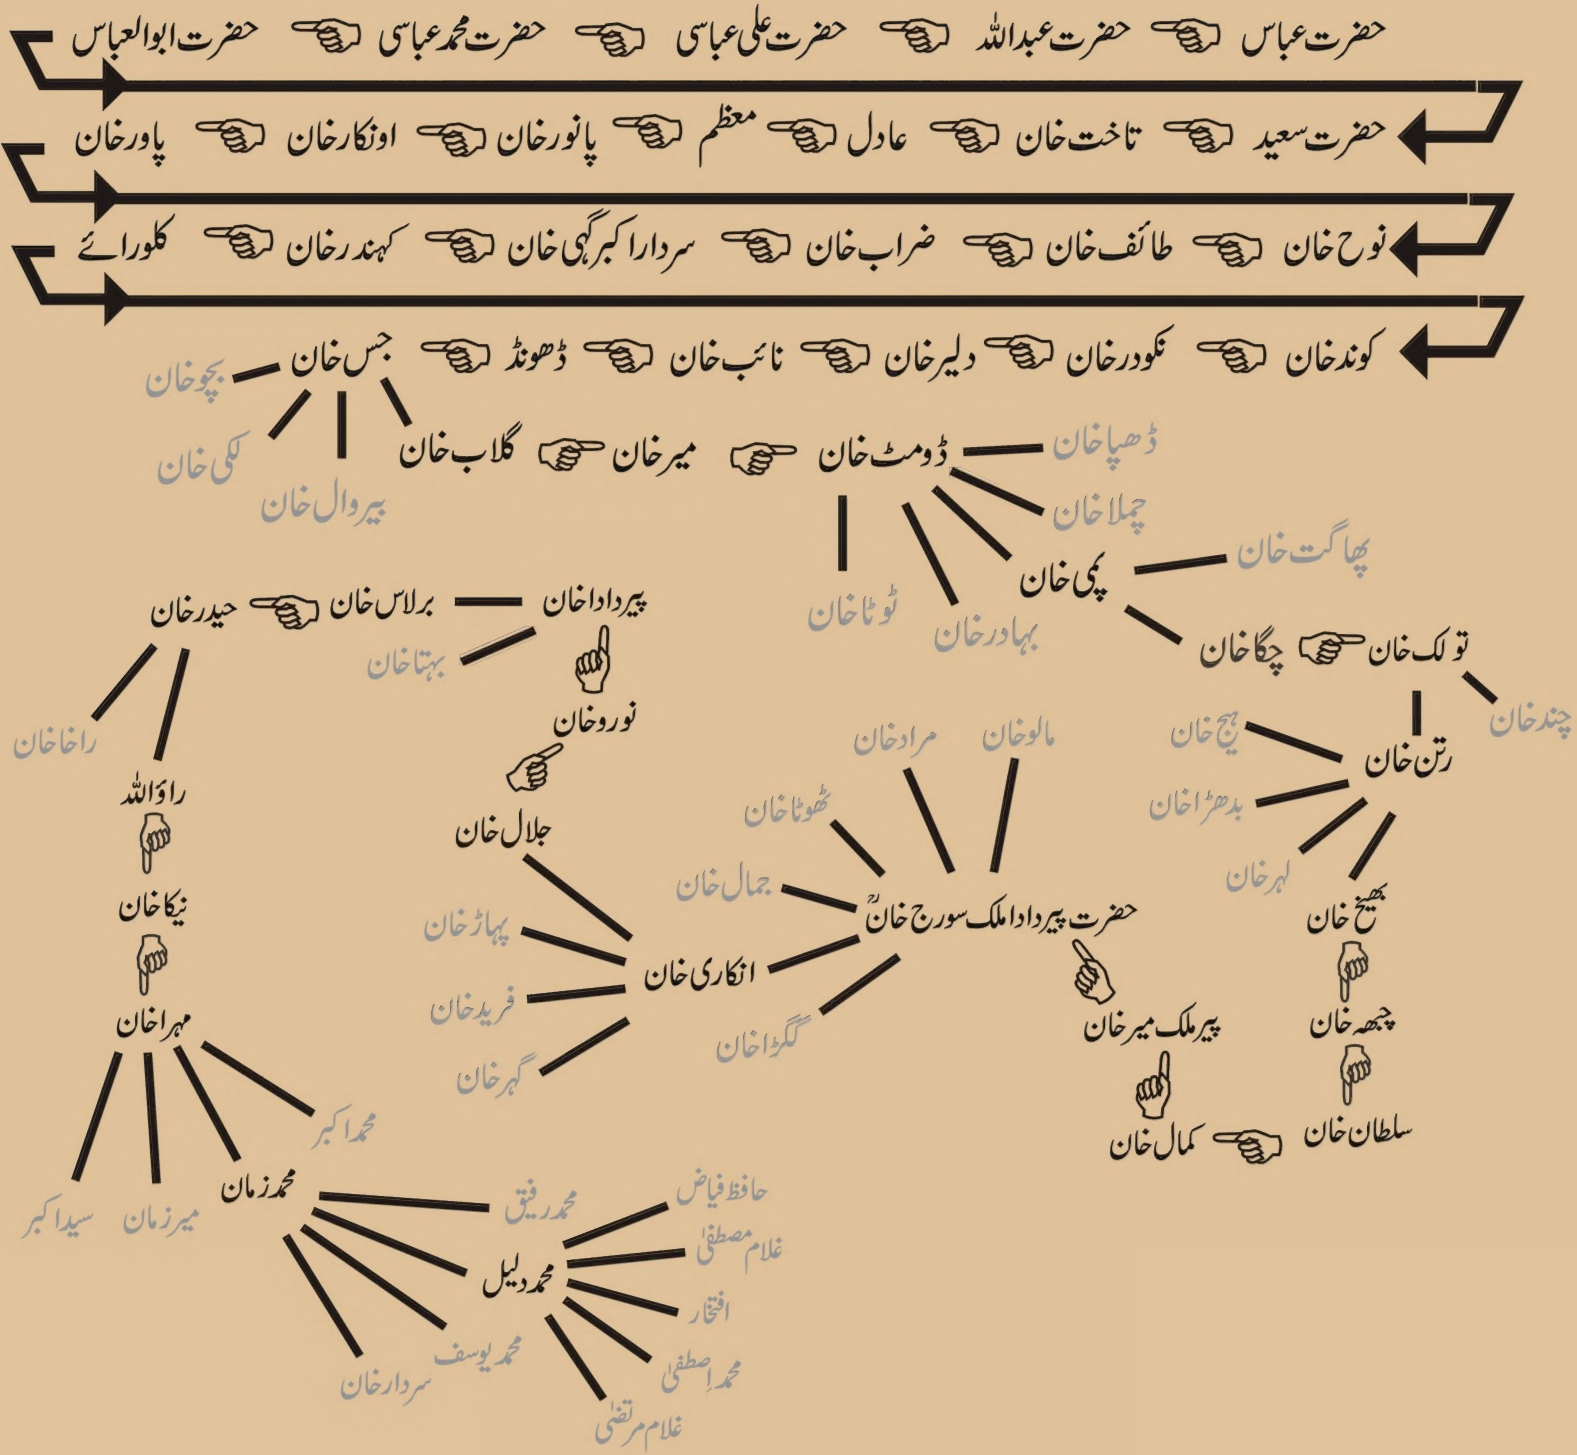 حضرت عباس حضرت عبداللہ حضرت علی عباسی حضرت محمد عباسی حضرت ابوالعباس
حضرت سعید تاخت خان عادل معظم پانور خان اونکار خان پاور خان
نوح خان طائف خان ضراب خان سردار اکبر گہی خان کہندر خان کلورائے
کوند خان نکودر خان دلیر خان نائب خان ڈھونڈ جس خان
بچو خان
لکی خان
بیروال خان
گلاب خان میر خان ڈومٹ خان
ڈھپا خان
چملا خان
پمی خان
بہادر خان
ٹوٹا خان
پھاگت خان
چگا خان تولک خان
چند خان
رتن خان
ہیج خان
بدھڑا خان
لہر خان
بھیخ خان
چبھہ خان
سلطان خان
کمال خان
پیر ملک میر خان
حضرت پیر دادا ملک سورج خانؒ
مالو خان
مراد خان
ٹھوٹا خان
جمال خان
گگڑا خان
انکاری خان
پہاڑ خان
فرید خان
گہر خان
جلال خان
نورو خان
پیر دادا خان
بہتا خان
برلاس خان
حیدر خان
راخا خان
راؤ اللہ
نیکا خان
مہرا خان
محمد اکبر
محمد زمان
میر زمان
سید اکبر
محمد رفیق
محمد دلیل
محمد یوسف
سردار خان
حافظ فیاض
غلام مصطفیٰ
افتخار
محمد اِصطفیٰ
غلام مرتضیٰ